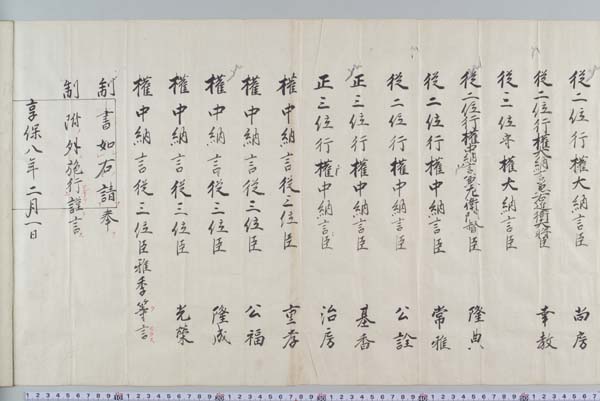 従二位行權大納言臣 尚房
従二位行權大納言兼右近衛大将臣 幸教
従二位守權大納言臣
従二位行權中納言兼左衛門督臣 隆典
従二位行權中納言臣 常雅
従二位行權中納言臣 公詮
正三位行權中納言臣 基香
正三位行權中納言臣 治房
權中納言従三位臣 重孝
權中納言従三位臣 公福
權中納言従三位臣 隆成
權中納言従三位臣 光榮
權中納言従三位臣雅季等言
制書如右請奉
制附外施行謹言
享保八年二月一日